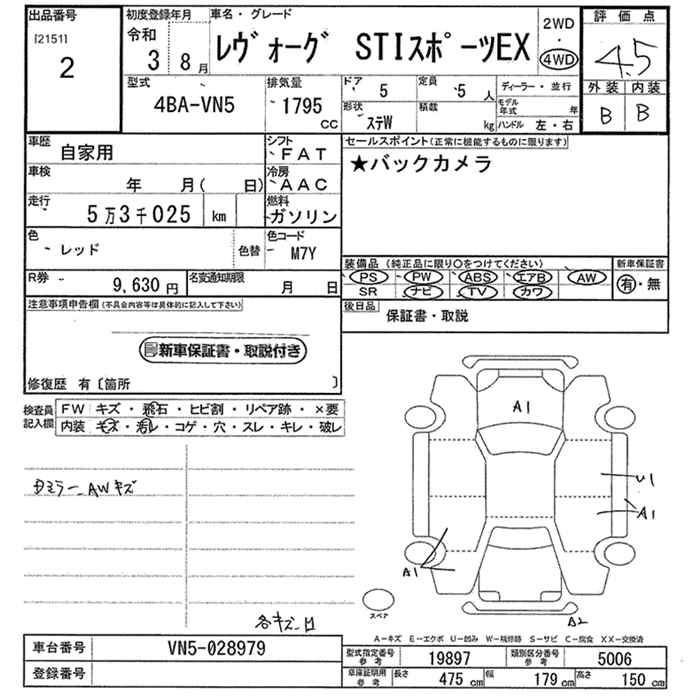 出品番号
[2151]
2
初度登録年月
令和
3 8月
車名・グレード
レヴォーグ STIスポーツEX
2WD
・
4WD
評価点
4.5
外装 内装
B B
型式
4BA-VN5
排気量
1795
cc
ドア
5
定員
5 人
ディーラー・並行
形状
ステW
積載
kg
モデル年式 年
ハンドル 左・右
車歴
自家用
シフト
FAT
車検
年 月( 日)
冷房
AAC
走行
5万3千025 km
燃料
ガソリン
色
レッド
色替
色コード
M7Y
R券
9,630 円
名変通知期限
月 日
セールスポイント(正常に機能するものに限ります)
★バックカメラ
装備品(純正品に限り〇をつけてください)
PS PW ABS エアB AW
SR ナビ TV カワ
新車保証書
有・無
後日品
保証書・取説
注意事項申告欄(不具合内容等は具体的に記入して下さい)
新車保証書・取説付き
修復歴 有〔箇所 〕
検査員記入欄
FW キズ・飛石・ヒビ割・リペア跡・×要
内装 キズ・汚レ・コゲ・穴・スレ・キレ・破レ
カミラー、AWキズ
各キズ、凹
A1
U1
A1
A1
A2
スペア
A−キズ E−エクボ U−凹み W−補修跡 S−サビ C−腐食 XX−交換済
車台番号
VN5-028979
登録番号
型式指定番号 参考
19897
類別区分番号 参考
5006
車庫証明用 参考
長さ 475 cm
幅 179 cm
高さ 150 cm